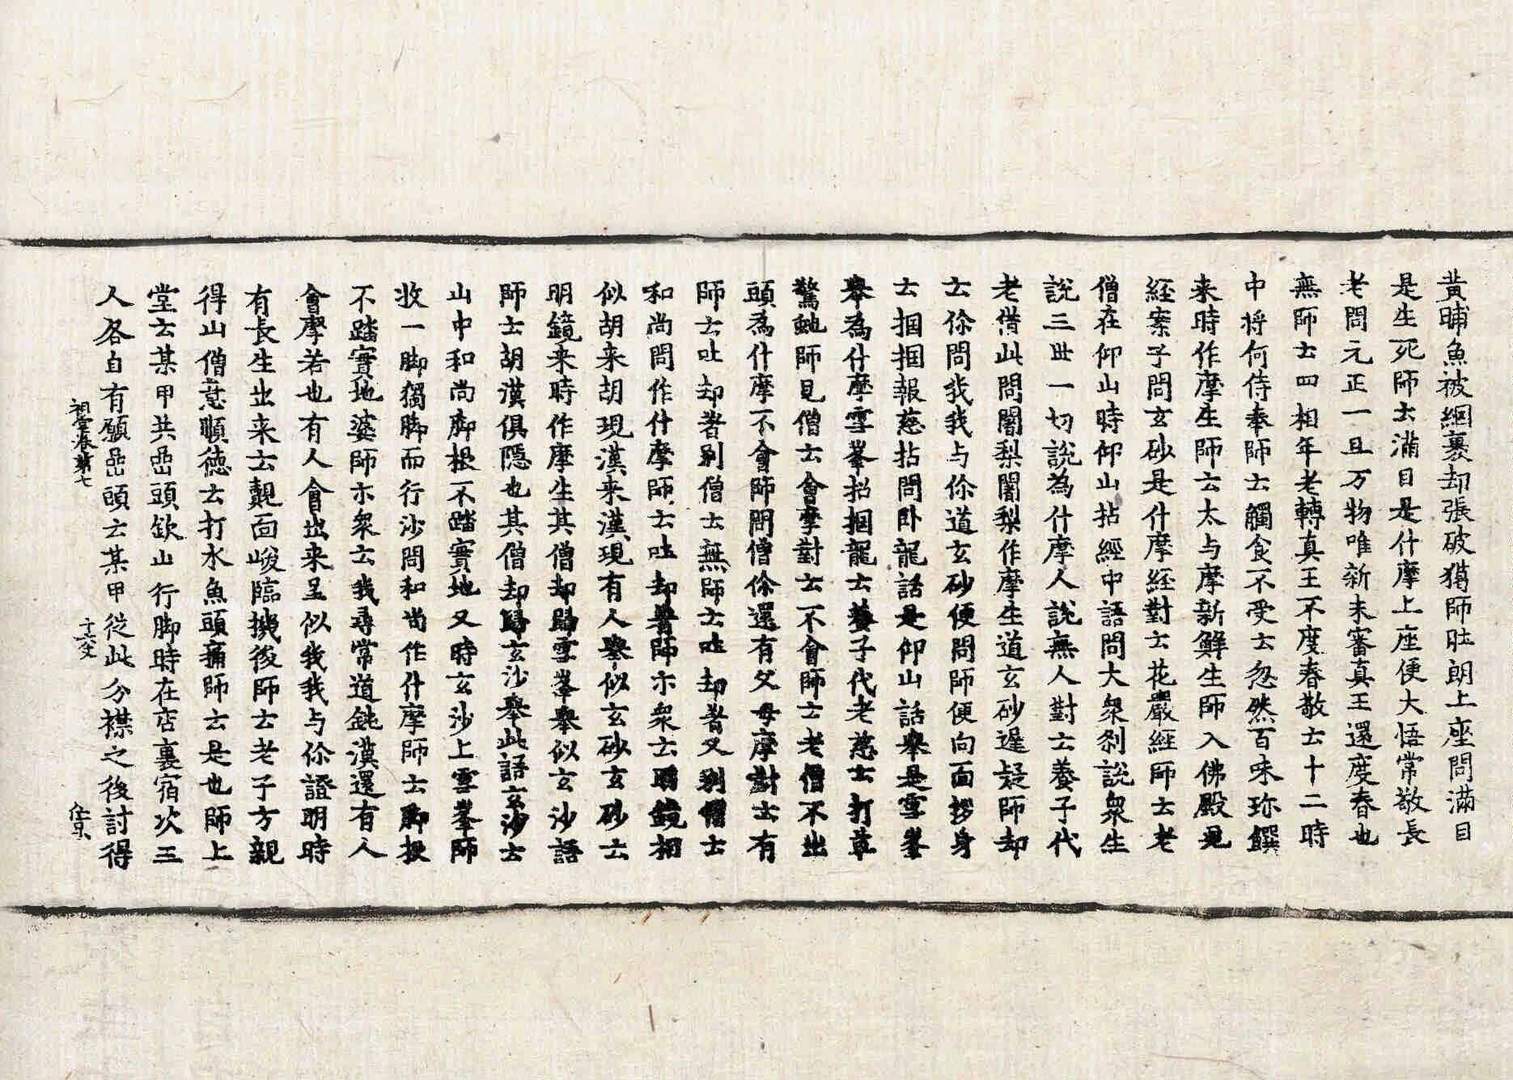 黃晡魚被網裹却張破獦師肚朗上座問滿目
是生死師士滿目是什摩上座便大悟常敬長
老問元正一旦万物唯新未審真王還度春也
無師士四相年老轉真王不度春敬士十二時
中将何侍奉師士觸食不受士忽然百味珎饌
来時作摩生師士太与摩新鮮生師入佛殿見
經案子問玄砂是什摩經對士花嚴經師士老
僧在仰山時仰山拈經中語問大衆刹說衆生
說三世一切說為什摩人說無人對士養子代
老借此問闍梨闍梨作摩生道玄砂遲疑師却
士你問我我与你道玄砂便問師便向面拶身
士掴掴報慈拈問卧龍話是仰山話舉是雪峯
舉為什摩雪峯招掴龍士養子代老慈士打草
驚虵師見僧士會摩對士不會師士老僧不出
頭為什摩不會師問僧你還有父母摩對士有
師士吐却著别僧士無師士吐却著又别僧士
和尚問作什摩師士吐却著師示衆士明鏡相
似胡来胡現漢来漢現有人舉似玄砂玄砂士
明鏡来時作摩生其僧却歸雪峯舉似玄沙語
師士胡漢俱隱也其僧却歸玄沙舉此語玄沙士
山中和尚脚根不踏實地又時玄沙上雪峯師
收一脚獨脚而行沙問和尚作什摩師士脚根
不踏實地婆師示衆士我尋常道鈍漢還有人
會摩若也有人會出来呈似我我与你證明時
有長生出来士覿面峻臨機後師士老子方親
得山僧意順德士打水魚頭痛師士是也師上
堂士某甲共嵒頭欽山行脚時在店裏宿次三
人各自有願嵒頭士某甲從此分襟之後討得
祖堂卷第七　十六丈